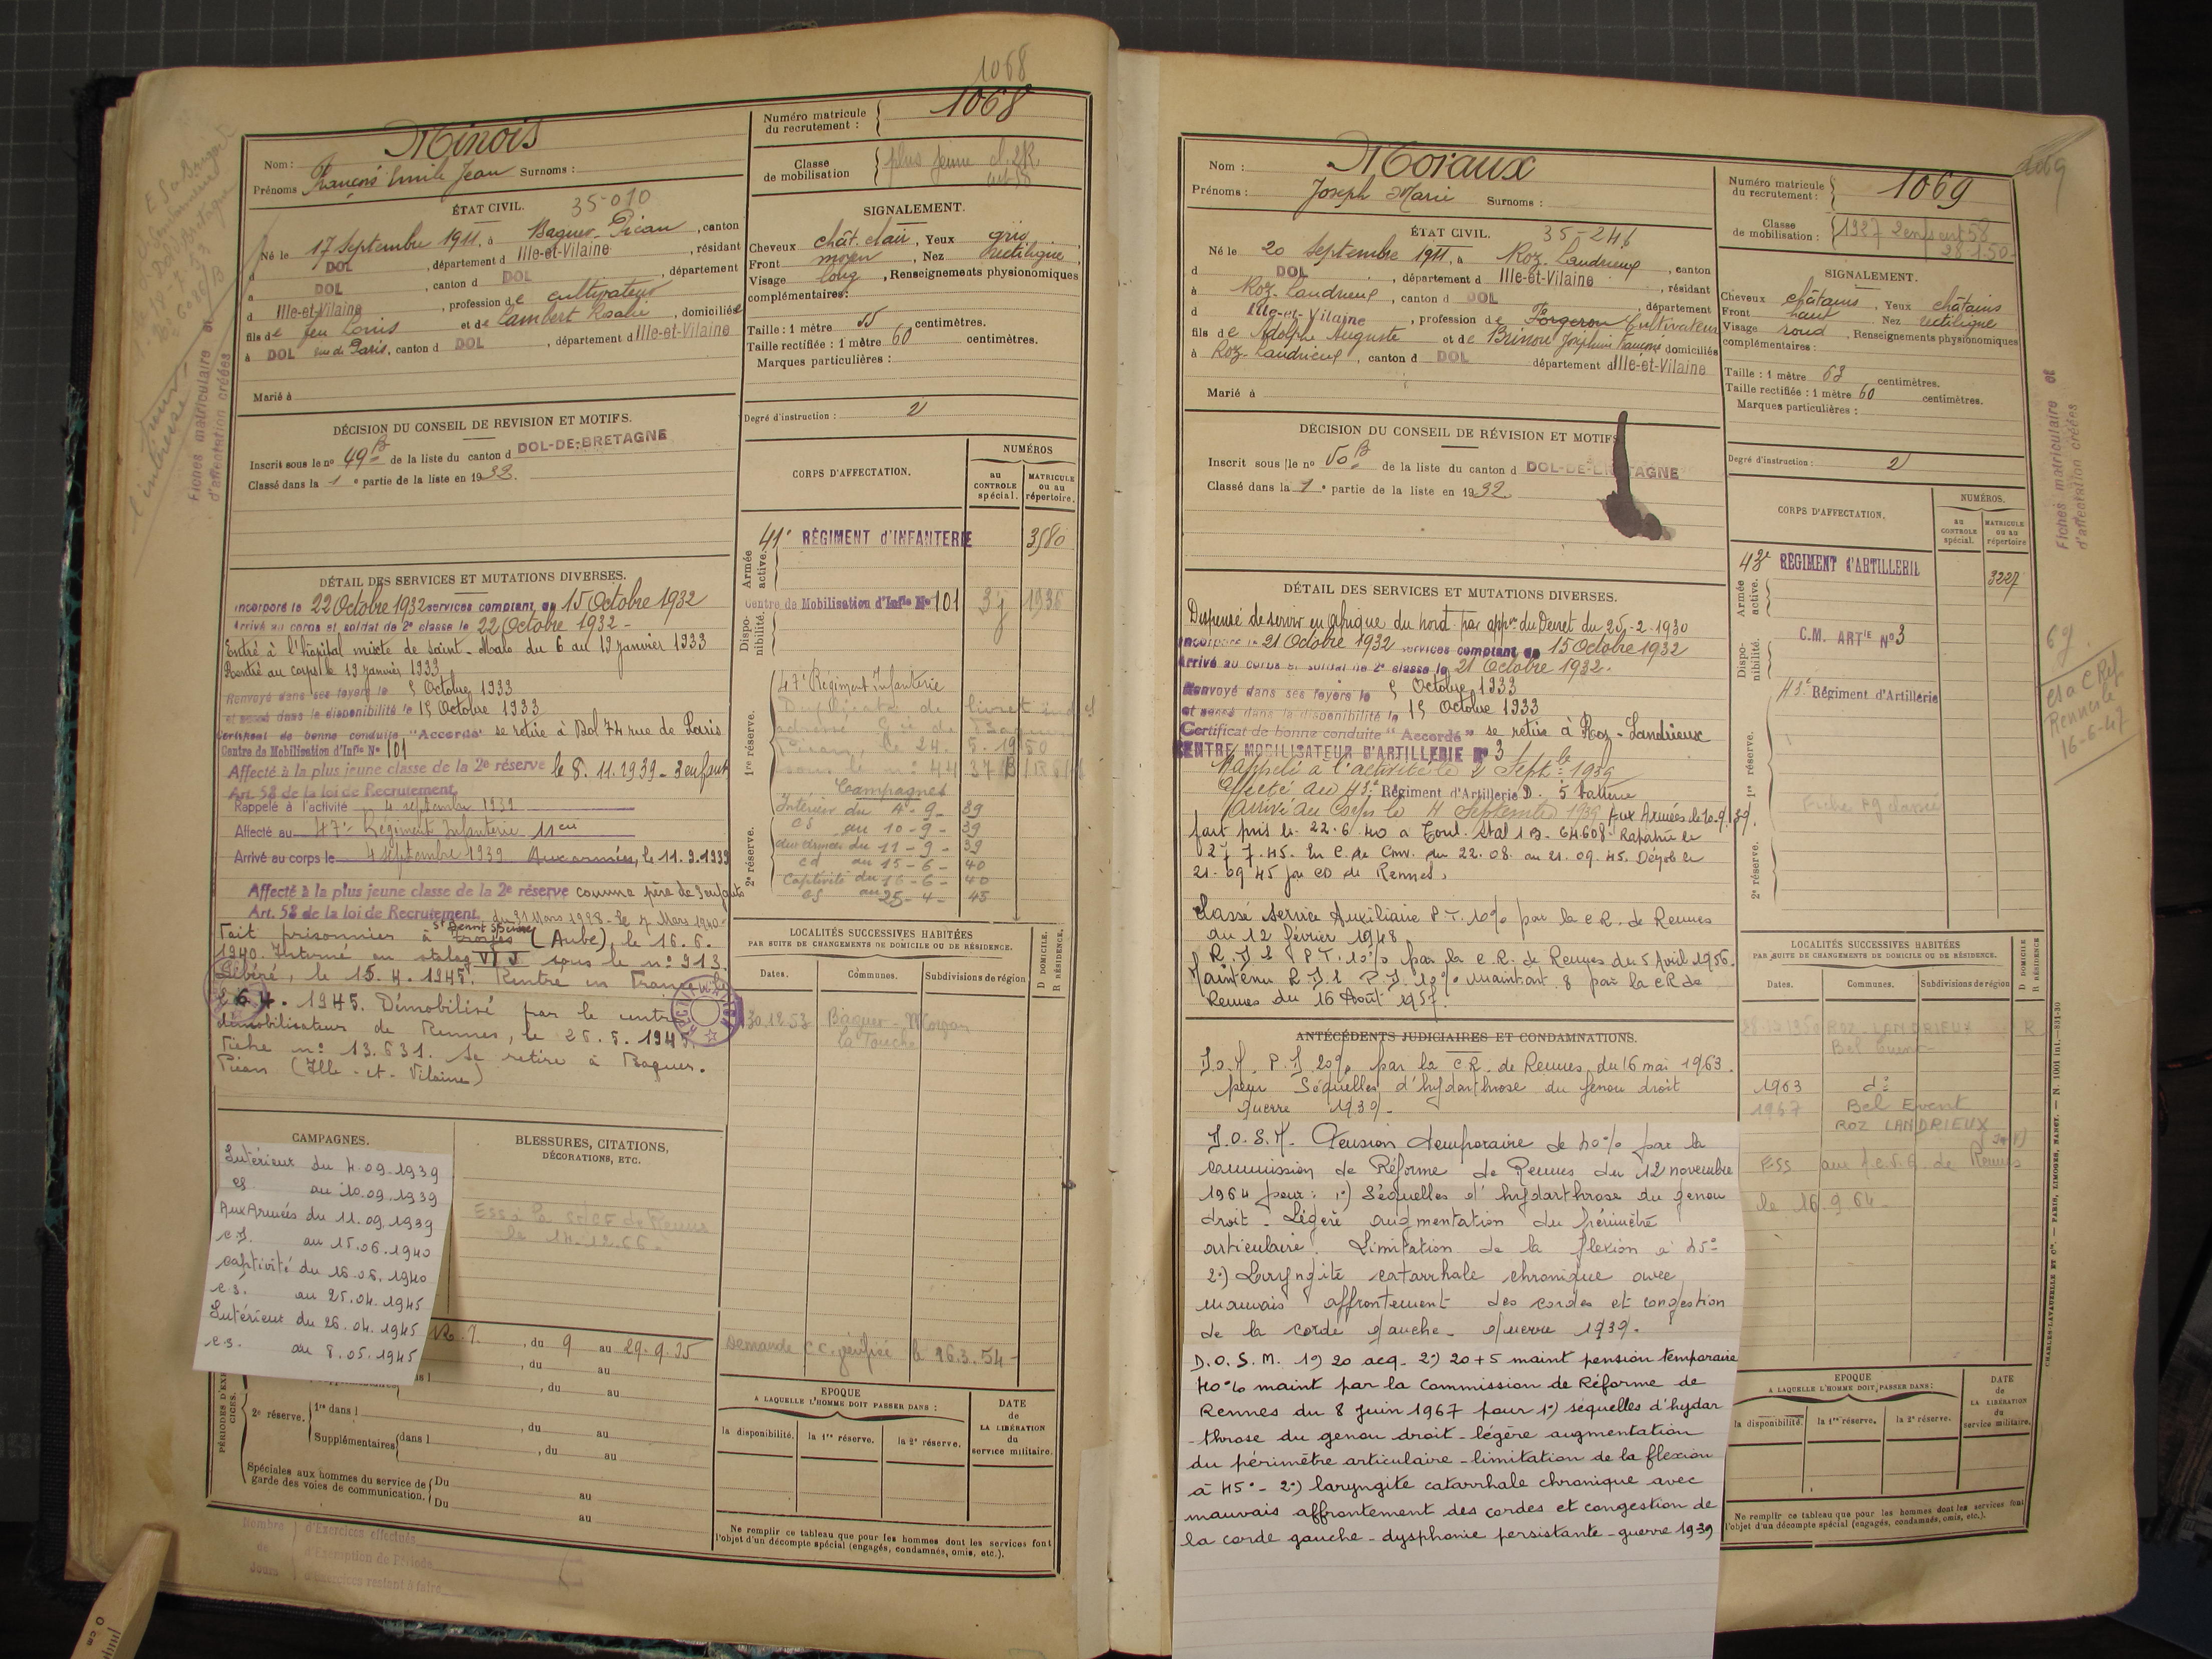 1068
Minois
Nom :
Prénoms François Emile Jean Surnoms :
Numéro matricule du recrutement : 1068
Classe de mobilisation plus jeune cl. 2R.
ÉTAT CIVIL. 35-010
Né le 17 Septembre 1911, à Baguer-Pican, canton
d DOL, département d Ille-et-Vilaine, résidant
à DOL, canton d DOL, département
d Ille-et-Vilaine, profession de cultivateur
fils de feu Louis et de Lambert Rosalie, domiciliés
à DOL rue de Paris, canton d DOL, département d Ille-et-Vilaine
Marié à
SIGNALEMENT.
Cheveux chât. clair, Yeux gris,
Front moyen, Nez rectiligne,
Visage long, Renseignements physionomiques
complémentaires:
Taille : 1 mètre 55 centimètres.
Taille rectifiée : 1 mètre 60 centimètres.
Marques particulières :
Degré d'instruction : 2
DÉCISION DU CONSEIL DE REVISION ET MOTIFS.
Inscrit sous le nº 49 B de la liste du canton d DOL-DE-BRETAGNE
Classé dans la 1e partie de la liste en 1932.
CORPS D'AFFECTATION.
NUMÉROS
au CONTROLE spécial.
MATRICULE ou au répertoire.
Armée active.
41e RÉGIMENT d'INFANTERIE 3580
Disponibilité.
Centre de Mobilisation d'Infie Nº 101 1936
1re réserve.
47e Régiment Infanterie
Campagnes
Intérieur du 4-9-39
CS au 10-9-39
aux armées du 11-9-39
cd au 15-6-40
Captivité du 16-6-40
CS au 25-4-45
2e réserve.
DÉTAIL DES SERVICES ET MUTATIONS DIVERSES.
Incorporé le 22 Octobre 1932 services comptant du 15 Octobre 1932
Arrivé au corps et soldat de 2e classe le 22 Octobre 1932 -
Entré à l'hôpital mixte de saint-Malo du 6 au 19 janvier 1933
Rentré au corps le 19 janvier 1933
Renvoyé dans ses foyers le 5 Octobre 1933
et passé dans la disponibilité le 15 Octobre 1933
Certificat de bonne conduite "Accordé" se retire à Dol 74 rue de Paris
Centre de Mobilisation d'Infie Nº 101
Affecté à la plus jeune classe de la 2e réserve le 8.11.1939 - 3 enfants
Art. 58 de la loi de Recrutement
Rappelé à l'activité 4 septembre 1939
Affecté au 47e Régiment Infanterie 11 cie
Arrivé au corps le 4 septembre 1939 Aux armées, le 11.9.1939
Affecté à la plus jeune classe de la 2e réserve comme père de 3 enfants
Art. 58 de la loi de Recrutement du 31 Mars 1928 - le 7 Mars 1940 -
Fait prisonnier à St Benoit S/Seine Troyes (Aube), le 16.6.
1940. Interné au stalag VI J sous le nº 913.
Libéré, le 15.4.1945. Rentré en France le
26.4.1945. Démobilisé par le centre
démobilisateur de Rennes, le 26.5.1945.
Fiche nº 13.631. Se retire à Baguer-
Pican (Ille-et-Vilaine)
LOCALITÉS SUCCESSIVES HABITÉES
PAR SUITE DE CHANGEMENTS DE DOMICILE OU DE RÉSIDENCE.
Dates. Communes. Subdivisions de région
D DOMICILE. R RÉSIDENCE.
30.12.53 Baguer-Morvan
la Touche
CAMPAGNES.
Intérieur du 4.09.1939
cs au 10.09.1939
Aux Armées du 11.09.1939
c.d. au 15.06.1940
captivité du 16.06.1940
c.s. au 25.04.1945
Intérieur du 26.04.1945
c.s. au 8.05.1945
BLESSURES, CITATIONS,
DÉCORATIONS, ETC.
le 14.12.66
, du 9 au 29.9.35
, du au
, du au
Demande C.C. le 26.3.54
PÉRIODES D'EXERCICES.
2e réserve. 1re dans l , du au
Supplémentaires dans l , du au
Spéciales aux hommes du service de garde des voies de communication. Du au
Du au
EPOQUE
A LAQUELLE L'HOMME DOIT PASSER DANS :
la disponibilité. la 1re réserve. la 2e réserve.
DATE de LA LIBÉRATION du service militaire.
Ne remplir ce tableau que pour les hommes dont les services font
l'objet d'un décompte spécial (engagés, condamnés, omis, etc.).
Nombre de jours
d'Exercices effectués
d'Exemption de Période
d'Exercices restant à faire
Fiches matriculaire et
d'affectation créées
0 cm
Moraux
Nom :
Prénoms : Joseph Marie Surnoms :
Numéro matricule du recrutement : 1069
Classe de mobilisation : 1927 2 enf art 58
28-1-50-
ÉTAT CIVIL. 35-246
Né le 20 Septembre 1911, à Roz-Landrieux, canton
d DOL, département d Ille-et-Vilaine, résidant
à Roz-Landrieux, canton d DOL, département
d Ille-et-Vilaine, profession de Forgeron Cultivateur
fils de Adolphe Auguste et de Joséphine domiciliés
à Roz-Landrieux, canton d DOL département d Ille-et-Vilaine
Marié à
SIGNALEMENT.
Cheveux châtains, Yeux châtains
Front haut Nez rectiligne
Visage rond, Renseignements physionomiques
complémentaires :
Taille : 1 mètre 63 centimètres.
Taille rectifiée : 1 mètre 60 centimètres.
Marques particulières :
Degré d'instruction : 2
DÉCISION DU CONSEIL DE RÉVISION ET MOTIFS
Inscrit sous le nº 50 B de la liste du canton d DOL-DE-BRETAGNE
Classé dans la 1e partie de la liste en 1932
CORPS D'AFFECTATION.
NUMÉROS.
au CONTROLE spécial.
MATRICULE ou au répertoire
Armée active.
43e RÉGIMENT d'ARTILLERIE 3227
Disponibilité.
C.M. ARTIE Nº 3
43e Régiment d'Artillerie
1re réserve.
Fiche PG classée
2e réserve.
DÉTAIL DES SERVICES ET MUTATIONS DIVERSES.
Dispensé de servir en Afrique du nord par appon du Décret du 25-2-1930
Incorporé le 21 Octobre 1932 services comptant du 15 Octobre 1932
Arrivé au corps et soldat de 2e classe le 21 Octobre 1932.
Renvoyé dans ses foyers le 5 Octobre 1933
et passé dans la disponibilité le 15 Octobre 1933
Certificat de bonne conduite "Accordé" se retire à Roz-Landrieux
CENTRE MOBILISATEUR D'ARTILLERIE Nº 3
Rappelé à l'activité le 2 Septbre 1939
Affecté au 43e Régiment d'Artillerie D. 5 batterie
Arrivé au Corps le 4 Septembre 1939 Aux Armées le 10.9.39.
fait pris le 22.6.40 à Toul. Stal 1B. 64608. Rapatrié le
27.7.45. En C. de Conv. du 22.08. au 21.09.45. Démob le
21.09.45 par CD de Rennes.
Classé Service Auxiliaire P.T. 10% par la CR. de Rennes
du 12 février 1948
R.D.2 P.T. 10% par la C.R. de Rennes du 5 Avril 1956.
Maintenu R.D.2 P.D. 10% maint. art. 8 par la CR de
Rennes du 16 Août 1957.
ANTÉCÉDENTS JUDICIAIRES ET CONDAMNATIONS.
P.D 20% par la C.R. de Rennes du 16 mai 1963.
pour Séquelles d'hydarthrose du genou droit
guerre 1939 -
D.O.S.M. Pension temporaire de 40% par la
commission de Réforme de Rennes du 12 novembre
1964 pour : 1º) Séquelles d'hydarthrose du genou
droit - Légère augmentation du périmètre
articulaire. Limitation de la flexion à 45º
2º) Laryngite catarrhale chronique avec
mauvais affrontement des cordes et congestion
de la corde gauche - guerre 1939.
D.O.S.M. 1º) 20 acq. 2º) 20+5 maint pension temporaire
40% maint par la Commission de Réforme de
Rennes du 8 Juin 1967 pour 1º) séquelles d'hydar
-throse du genou droit - légère augmentation
du périmètre articulaire - limitation de la flexion
à 45º - 2º) laryngite catarrhale chronique avec
mauvais affrontement des cordes et congestion de
la corde gauche - dysphonie persistante - guerre 1939
LOCALITÉS SUCCESSIVES HABITÉES
PAR SUITE DE CHANGEMENTS DE DOMICILE OU DE RÉSIDENCE.
Dates. Communes. Subdivisions de région
D DOMICILE R RÉSIDENCE
ROZ-LANDRIEUX R
1963 dº
1967 Bel Event
ROZ LANDRIEUX
ESS de Rennes
le 16.9.64 -
EPOQUE
A LAQUELLE L'HOMME DOIT PASSER DANS :
la disponibilité. la 1re réserve. la 2e réserve.
DATE de LA LIBÉRATION du service militaire.
Ne remplir ce tableau que pour les hommes dont les services font
l'objet d'un décompte spécial (engagés, condamnés, omis, etc.).
Fiches matriculaire et
d'affectation créées
Rennes le
16-6-47
CHARLES-LAVAUZELLE ET Cie. — PARIS, LIMOGES, NANCY. — N. 1001 int.—831-30